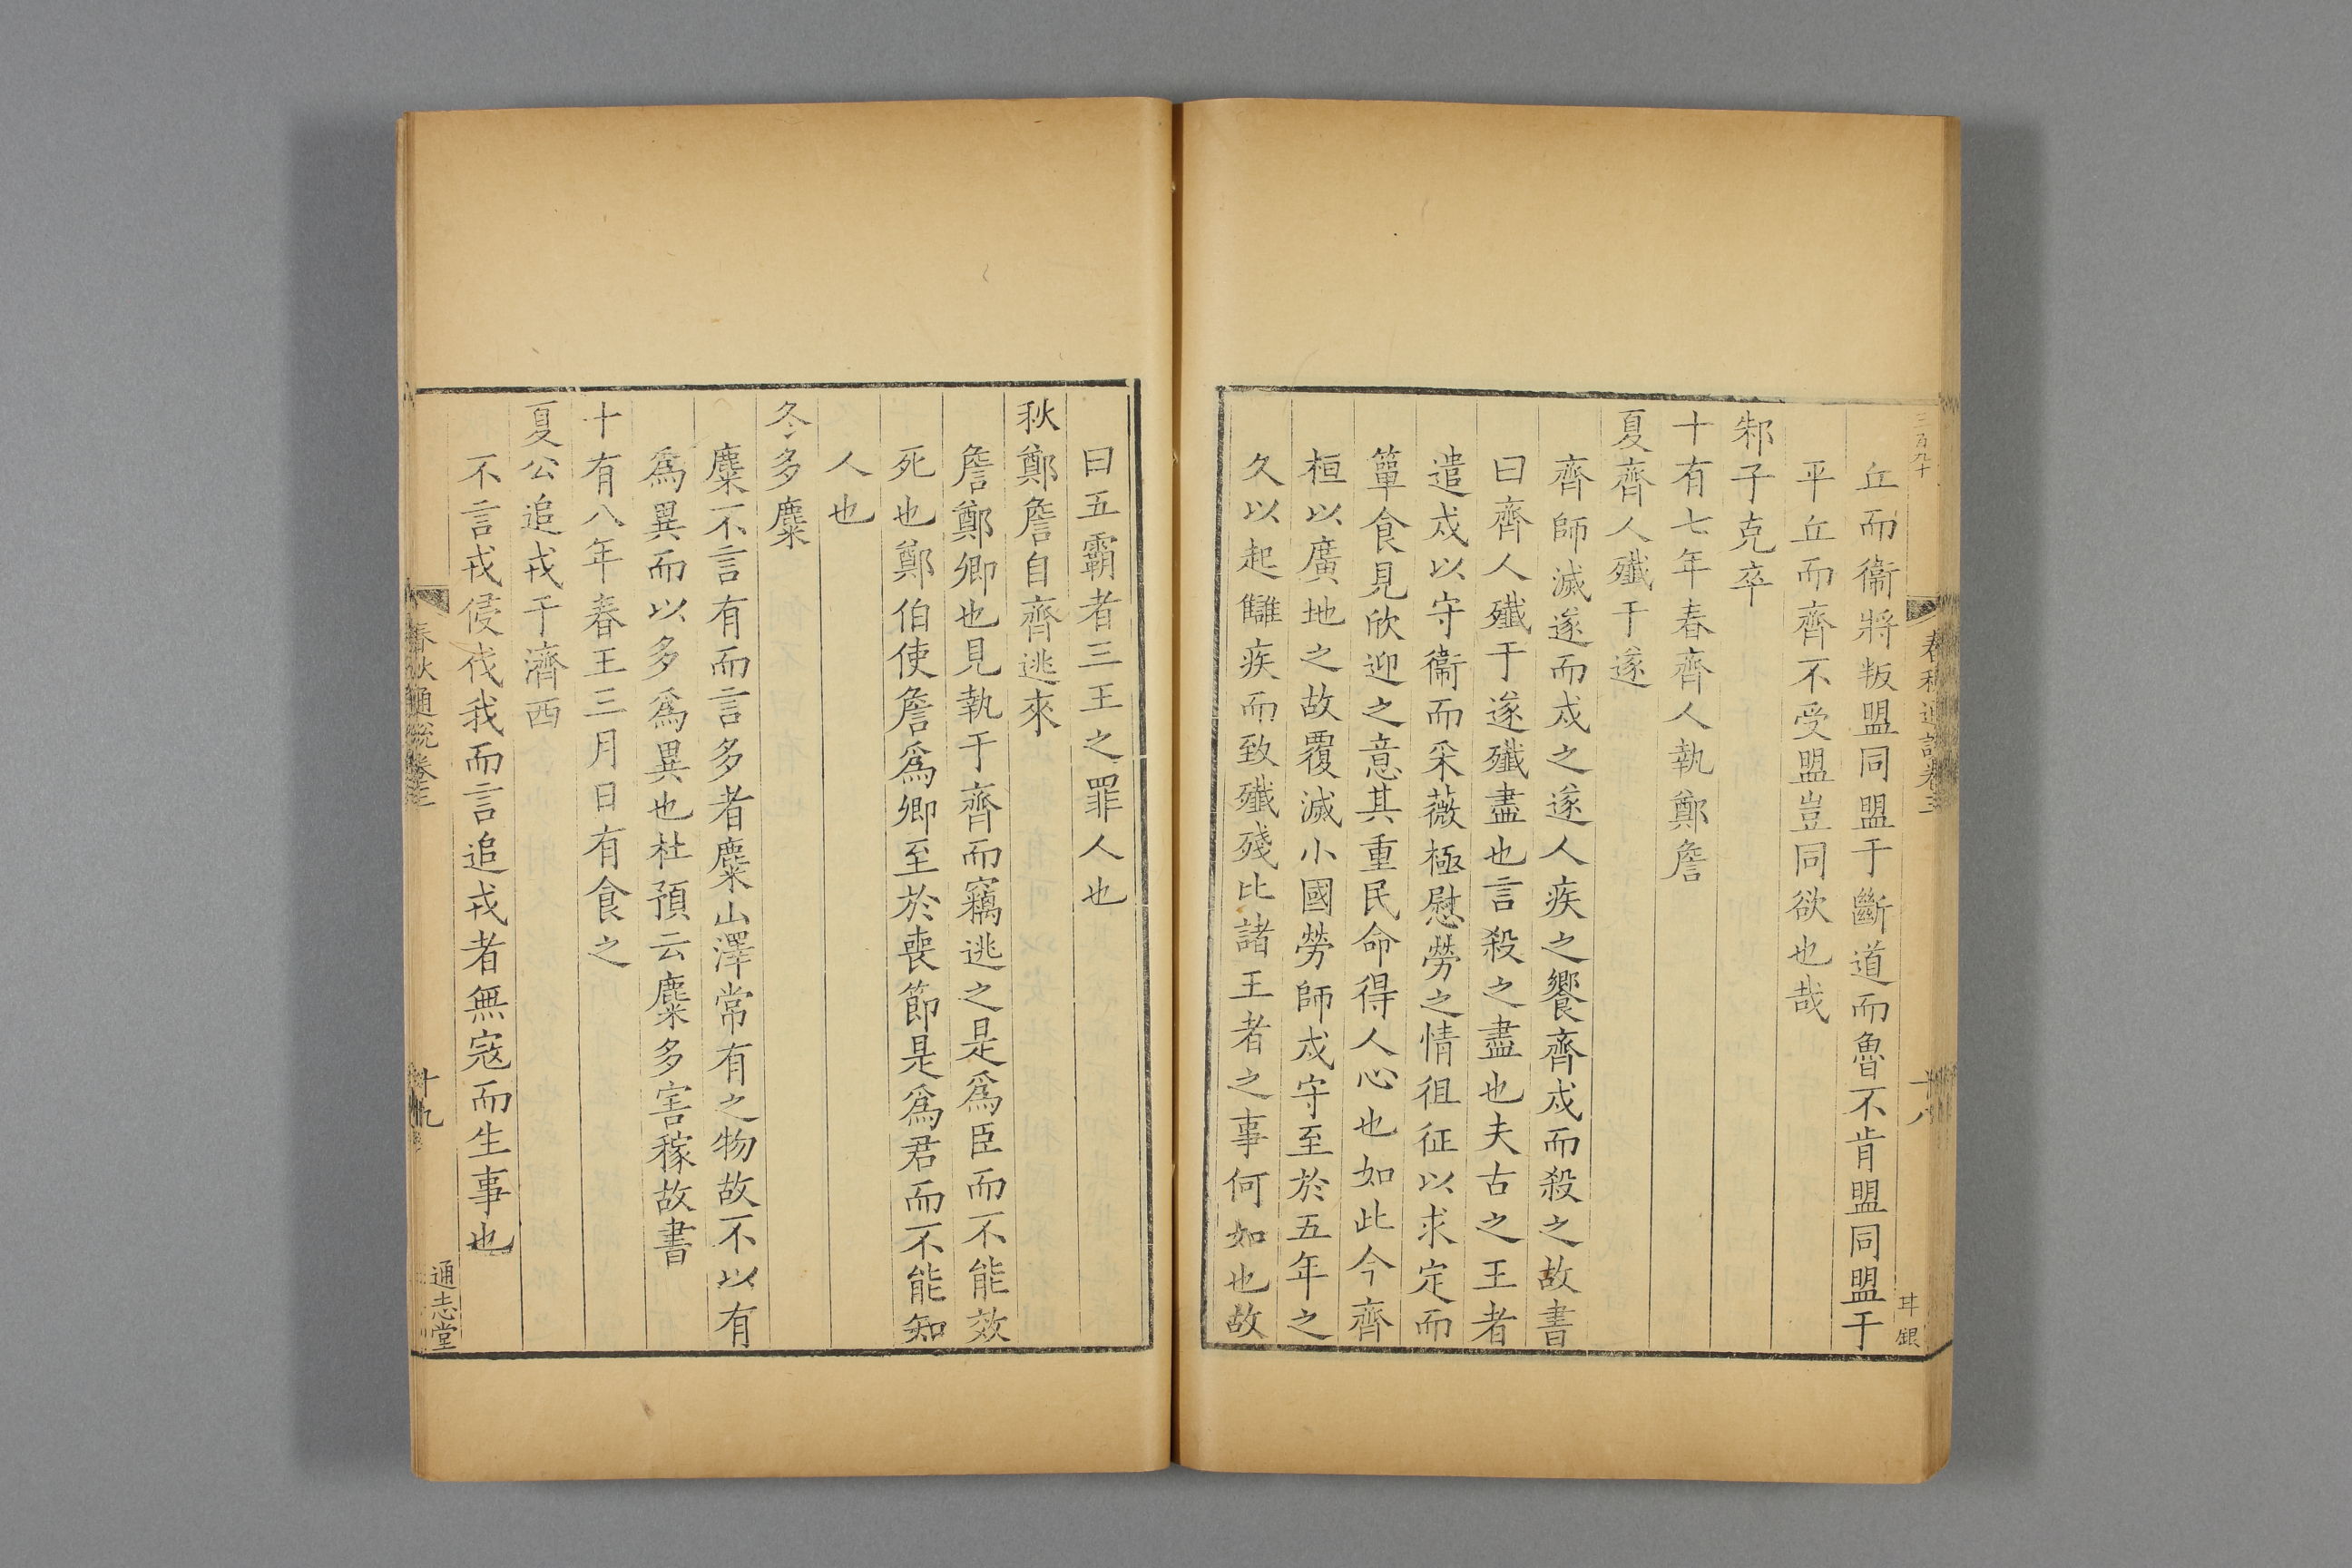 三百九十
春秋通說卷三
十八
甘銀
丘而衞將叛盟同盟于斷道而魯不肯盟同盟于
平丘而齊不受盟豈同欲也哉
邾子克卒
十有七年春齊人執鄭詹
夏齊人殲于遂
齊師滅遂而戍之遂人疾之饗齊戍而殺之故書
曰齊人殲于遂殲盡也言殺之盡也夫古之王者
遣戍以守衞而采薇極慰勞之情徂征以求定而
簞食見欣迎之意其重民命得人心也如此今齊
桓以廣地之故覆滅小國勞師戍守至於五年之
久以起讎疾而致殲殘比諸王者之事何如也故
曰五霸者三王之罪人也
秋鄭詹自齊逃來
詹鄭卿也見執于齊而竊逃之是爲臣而不能效
死也鄭伯使詹爲卿至於喪節是爲君而不能知
人也
冬多麋
麋不言有而言多者麋山澤常有之物故不以有
爲異而以多爲異也杜預云麋多害稼故書
十有八年春王三月日有食之
夏公追戎于濟西
不言戎侵伐我而言追戎者無寇而生事也
春秋通說卷三
十九
通志堂